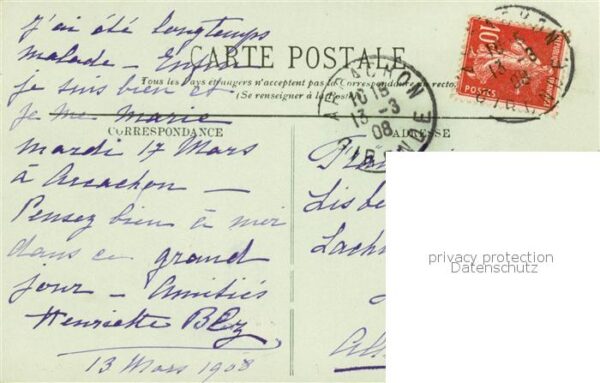 J'ai été longtemps
malade - Enfin
CARTE POSTALE
Tous les Pays étrangers n'acceptent pas la Correspondance au recto
(Se renseigner à la Poste)
je suis bien et
je me marie
CORRESPONDANCE
ADRESSE
mardi 17 Mars
à Arcachon -
Pensez bien à moi
dans ce grand
jour - Amitiés
Henriette
13 Mars 1908
10
POSTES
ARCACHON
10 15
13 -3
08
GIRONDE
Lisbe
Lach
privacy protection
Datenschutz